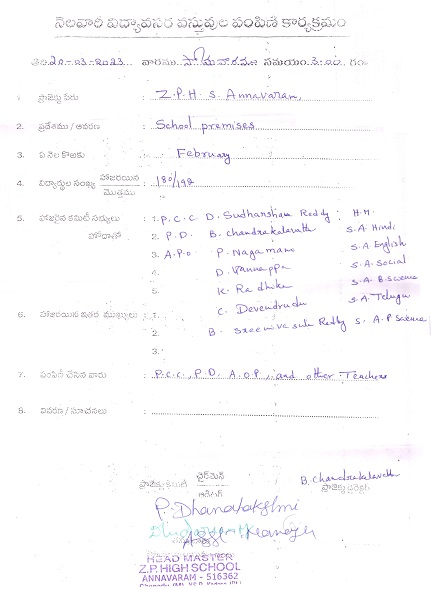 నెలవారీ విద్యావసర వస్తువుల పంపిణీ కార్యక్రమం
తేది: 20-03-2023 వారము సోమవారము సమయం 3.00 గం.
1. ప్రాజెక్టు పేరు : Z.P.H.S. Annavaram
2. ప్రదేశము / ఆవరణ : School premises
3. ఏ నెల కొఱకు : February
4. విద్యార్థుల సంఖ్య హాజరయిన/మొత్తము : 180/192
5. హాజరైన కమిటీ సభ్యులు : 1. P.C.C D. Sudharshan Reddy H.M.
హోదాతో 2. P.D. B. Chandrakalavathi S.A. Hindi
3. A.P.O P. Nagamani S.A English
4. D. Vannappa S.A. Social
5. K. Radhika S.A. B.Science
6. హాజరయిన ఇతర ముఖ్యులు : 1. C. Devendrudu S.A. Telugu
2. B. Sreenivasulu Reddy S.A P Science
3.
7. పంపిణీ చేసిన వారు : P.C.C., P.D. A.O.P., and other Teachers
8. వివరణ / సూచనలు :
ప్రాజెక్టు కమిటీ చైర్‌మెన్ B. Chandrakalavathi
ఆడిటర్ ప్రాజెక్టు డైరెక్టర్
P. Dhanalakshmi
HEAD MASTER
Z.P. HIGH SCHOOL
ANNAVARAM - 516362